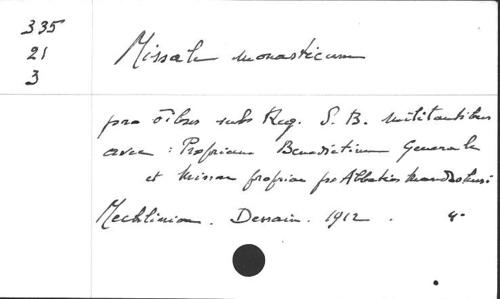 335
21
3
Missale monasticum
pro oībus sub Reg. S. B. militantibus
avec : Proprium Benedictinum Generale
et Missae propriae pro Abbatia
Mechliniae. Dessain. 1912. 4°